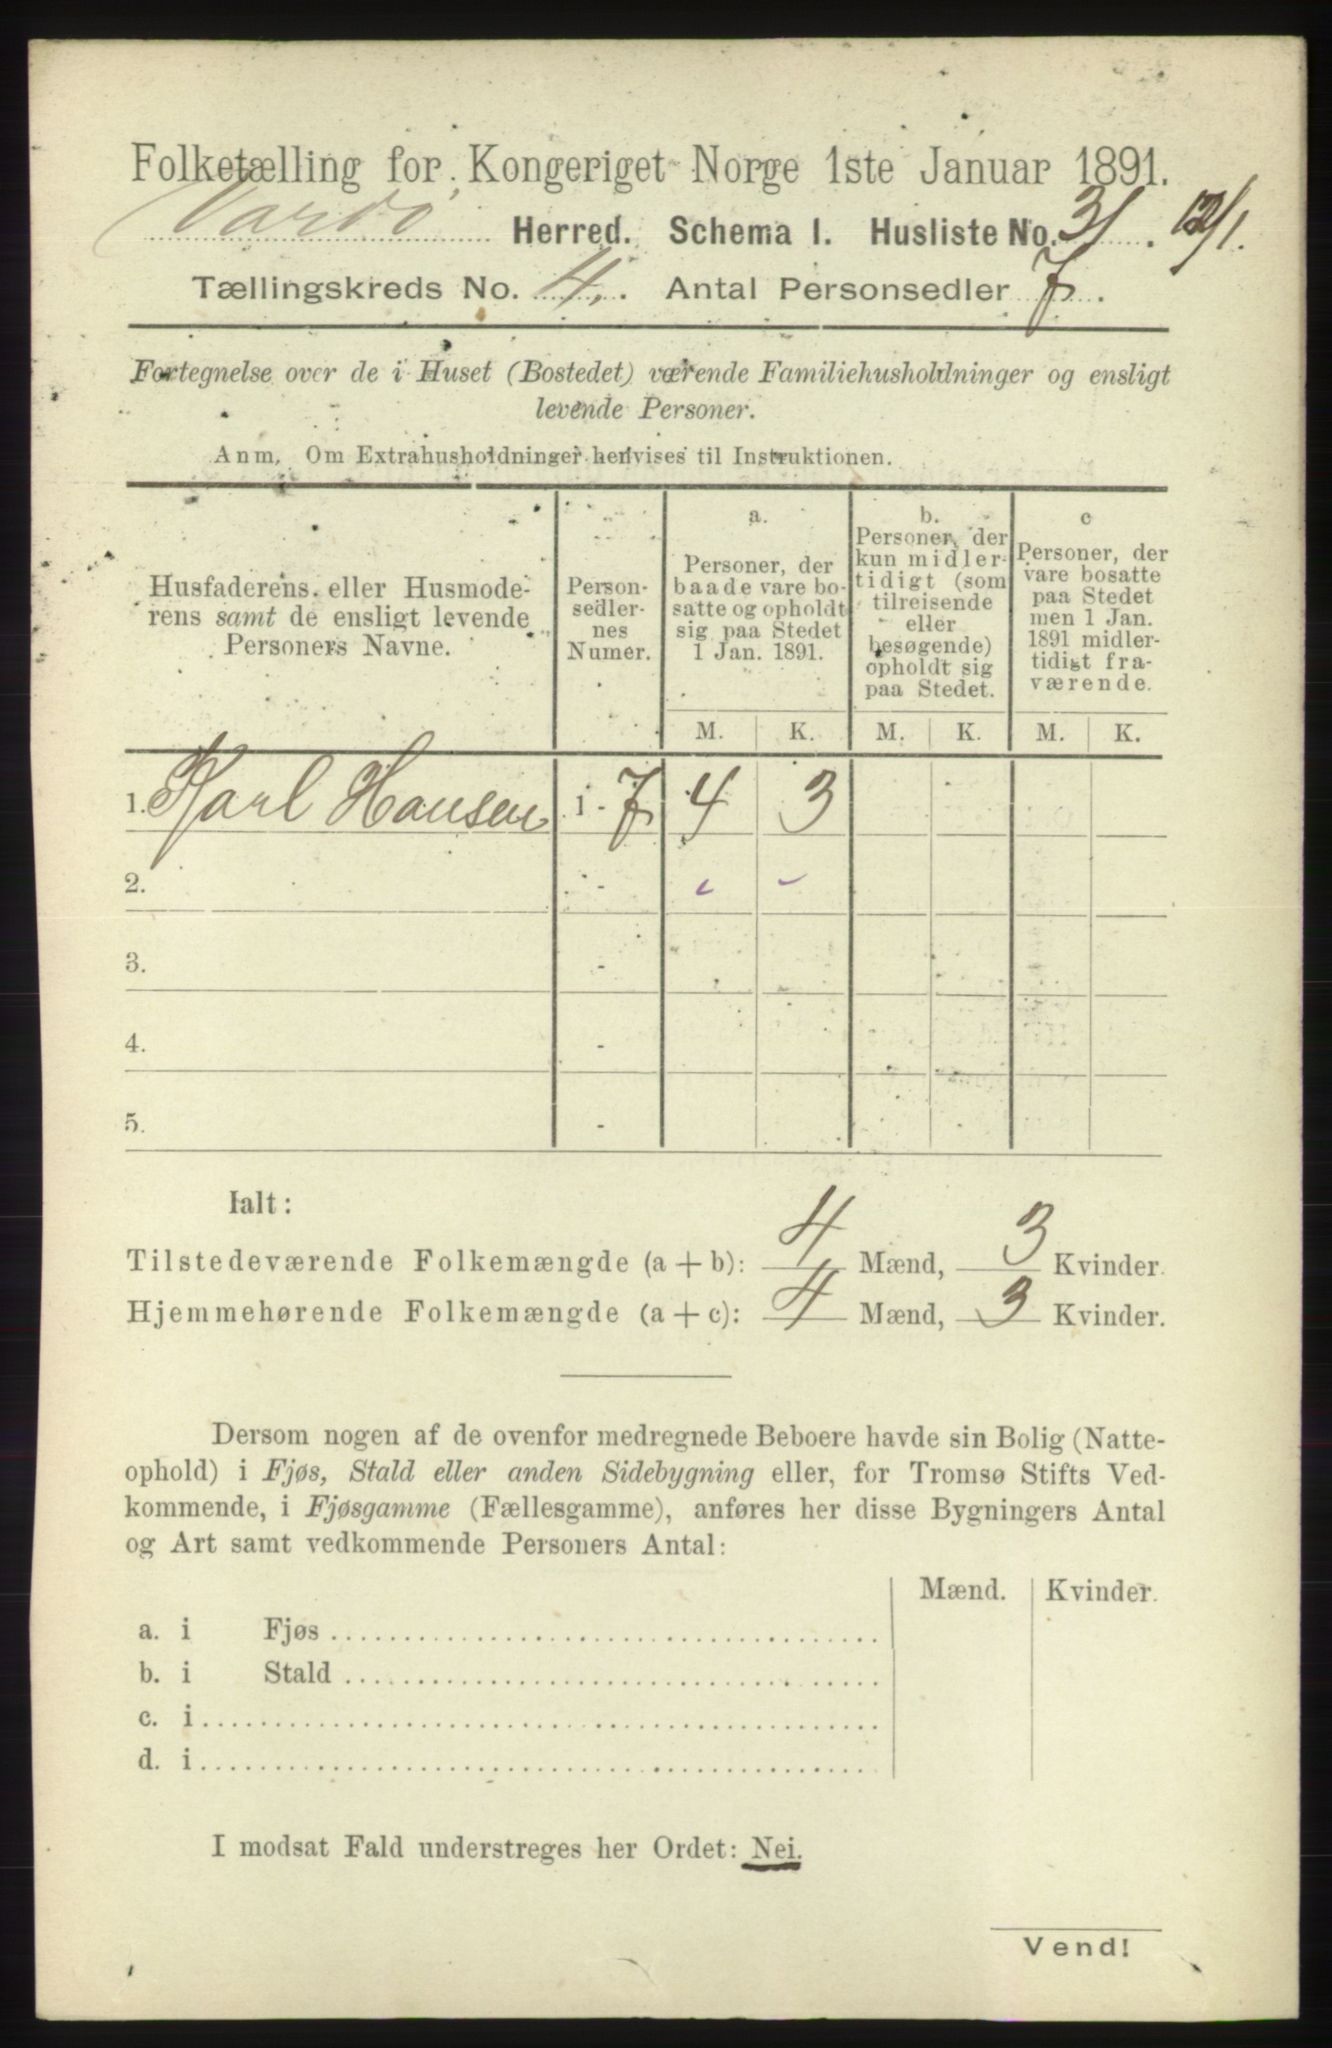 Folketælling for Kongeriget Norge 1ste Januar 1891.
Vardø Herred. Schema I. Husliste No. 31.
Tællingskreds No. 4. Antal Personsedler 7.
Fortegnelse over de i Huset (Bostedet) værende Familiehusholdninger og ensligt
levende Personer.
Anm. Om Extrahusholdninger henvises til Instruktionen.
Husfaderens eller Husmode-
rens samt de ensligt levende
Personers Navne.
Person-
sedler-
nes
Numer.
a.
Personer, der
baade vare bo-
satte og opholdt
sig paa Stedet
1 Jan. 1891.
b.
Personer, der
kun midler-
tidigt (som
tilreisende
eller
besøgende)
opholdt sig
paa Stedet.
c
Personer, der
vare bosatte
paa Stedet
men 1 Jan.
1891 midler-
tidigt fra-
værende.
M. K. M. K. M. K.
1. Karl Hansen 1 - 7 4 3
2. -
3. -
4. -
5. -
Ialt:
Tilstedeværende Folkemængde (a + b): 4 Mænd, 3 Kvinder.
Hjemmehørende Folkemængde (a + c): 4 Mænd, 3 Kvinder.
Dersom nogen af de ovenfor medregnede Beboere havde sin Bolig (Natte-
ophold) i Fjøs, Stald eller anden Sidebygning eller, for Tromsø Stifts Ved-
kommende, i Fjøsgamme (Fællesgamme), anføres her disse Bygningers Antal
og Art samt vedkommende Personers Antal:
Mænd. Kvinder.
a. i Fjøs
b. i Stald
c. i
d. i
I modsat Fald understreges her Ordet: Nei.
Vend!